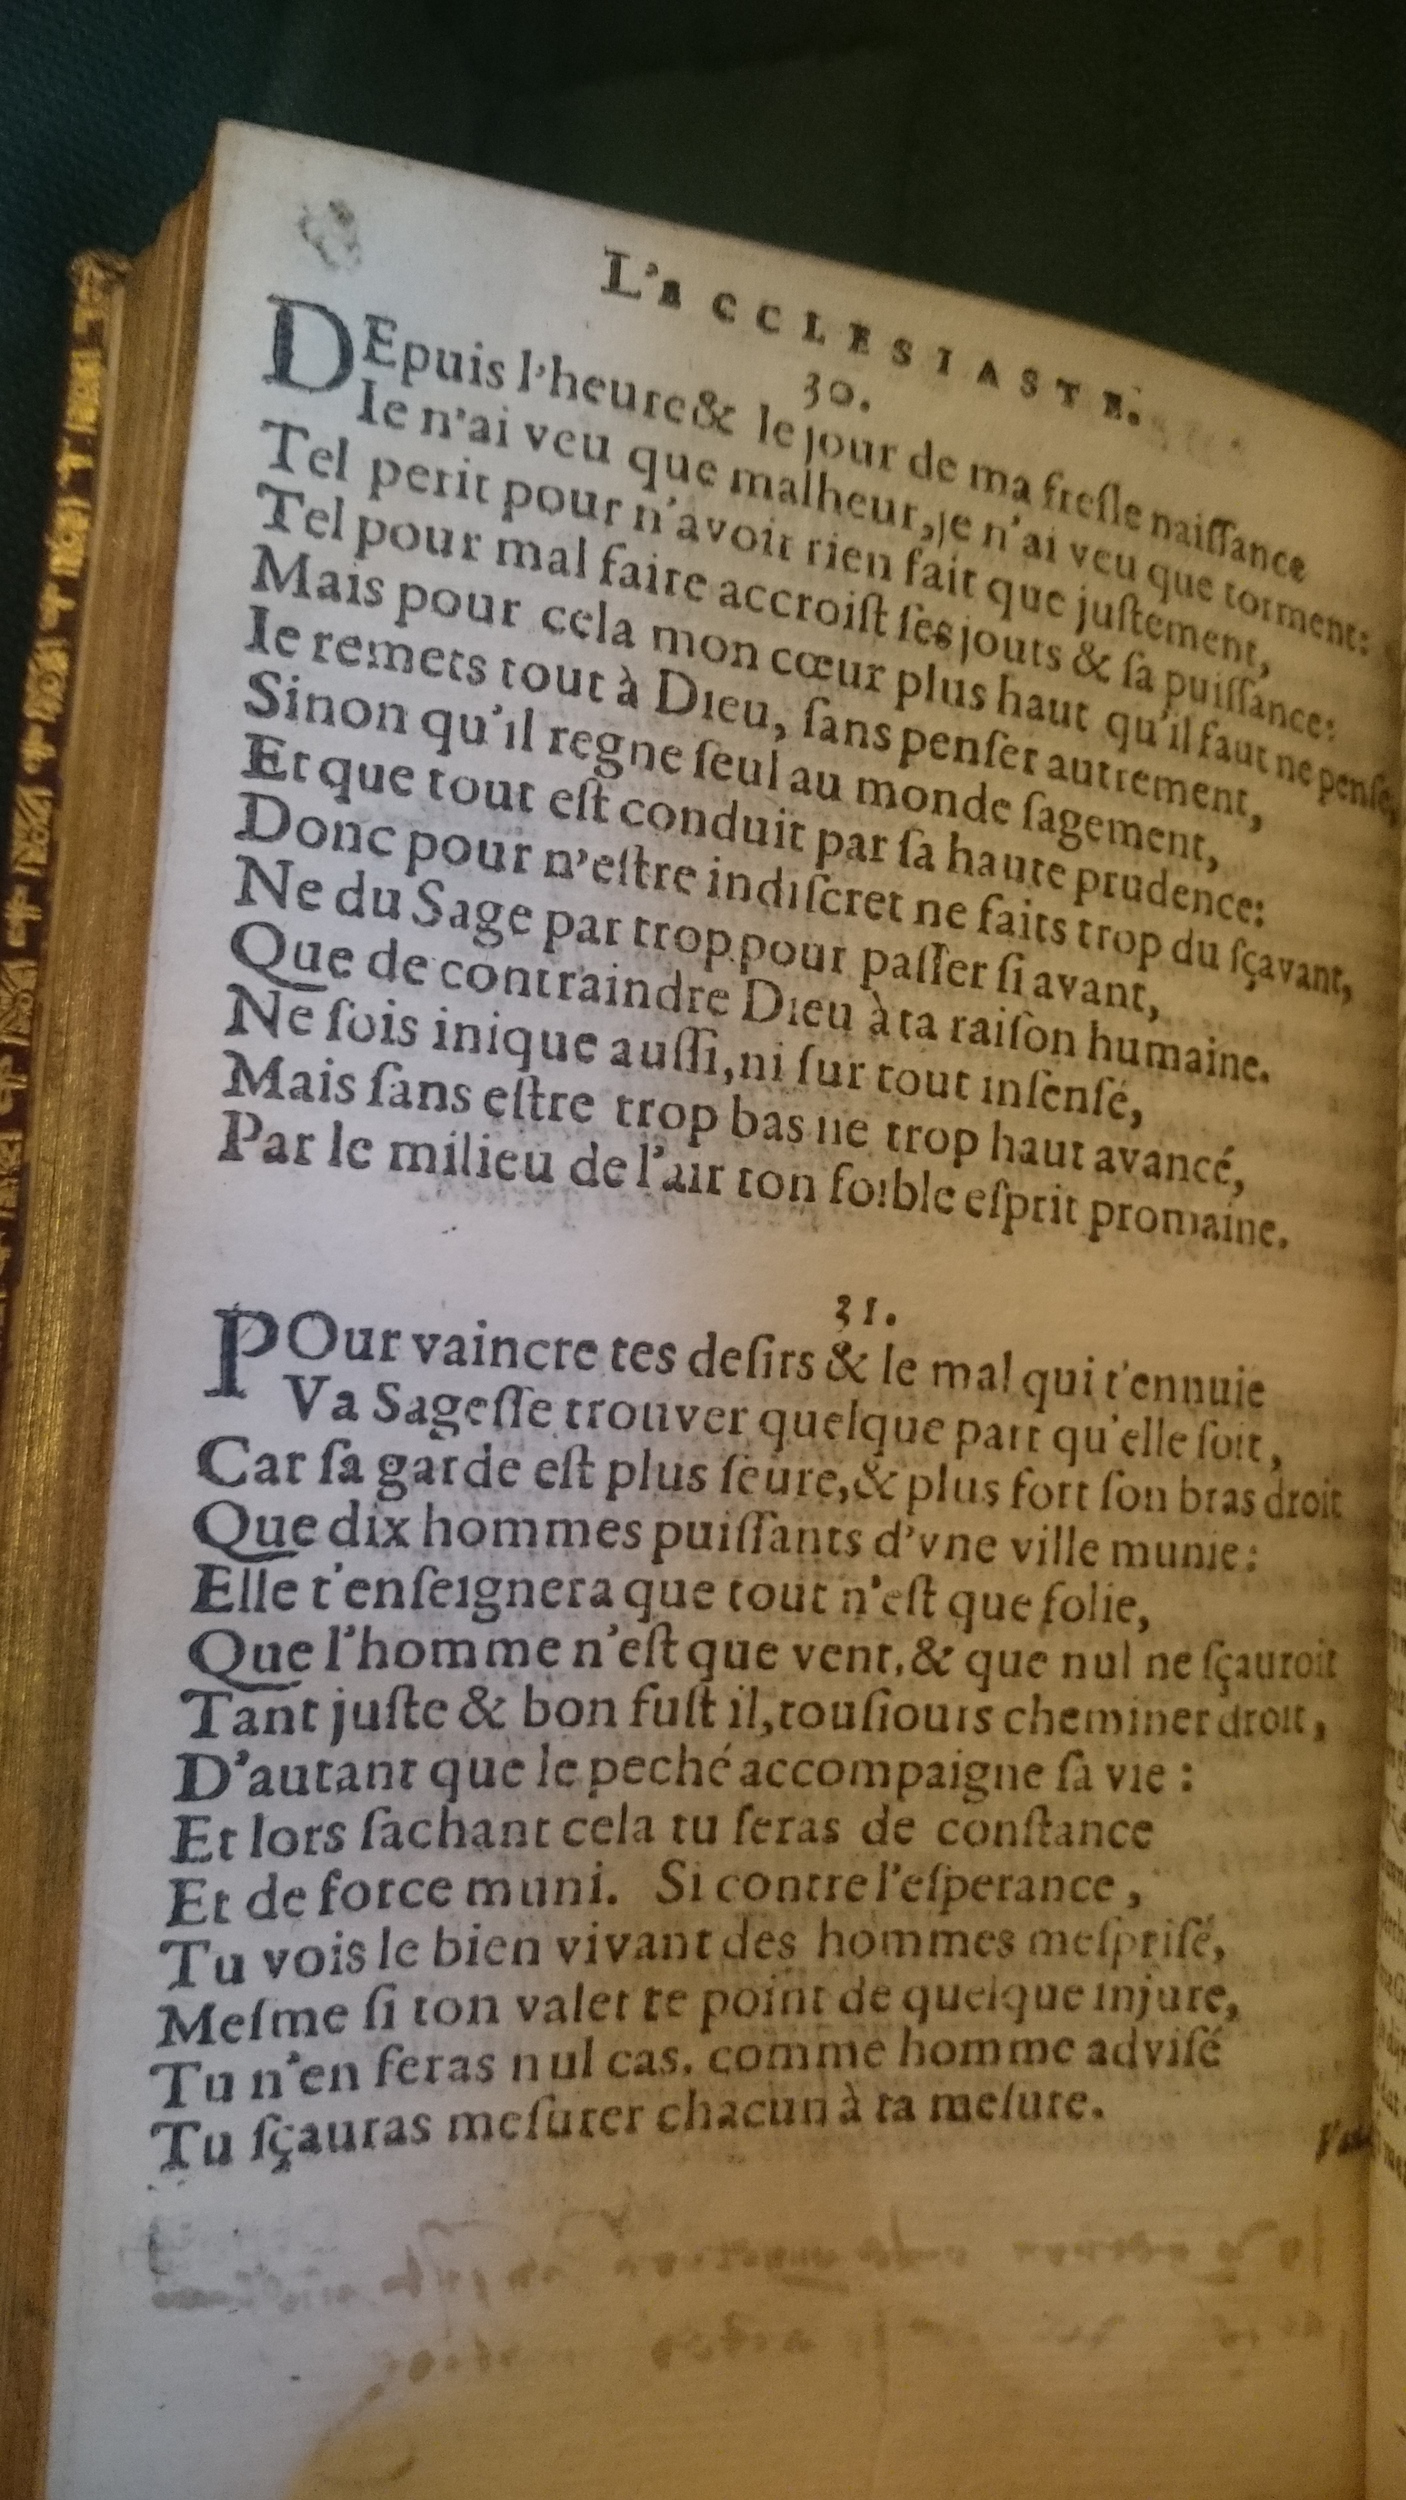 L'ECCLESIASTE.
30.
DEpuis l'heure & le jour de ma fresle naiſſance
Ie n'ai veu que malheur, je n'ai veu que torment:
Tel perit pour n'avoir rien fait que juſtement,
Tel pour mal faire accroiſt ſes jours & ſa puiſſance:
Mais pour cela mon cœur plus haut qu'il faut ne penſe,
Ie remets tout à Dieu, ſans penſer autrement,
Sinon qu'il regne ſeul au monde ſagement,
Et que tout eſt conduit par ſa haute prudence:
Donc pour n'eſtre indiſcret ne faits trop du ſçavant,
Ne du Sage par trop pour paſſer ſi avant,
Que de contraindre Dieu à ta raiſon humaine.
Ne ſois inique auſſi, ni ſur tout inſenſé,
Mais ſans eſtre trop bas ne trop haut avancé,
Par le milieu de l'air ton foible eſprit promaine.
31.
POur vaincre tes deſirs & le mal qui t'ennuie
Va Sageſſe trouver quelque part qu'elle ſoit,
Car ſa garde eſt plus ſeure, & plus fort ſon bras droit
Que dix hommes puiſſants d'vne ville munie:
Elle t'enſeignera que tout n'eſt que folie,
Que l'homme n'eſt que vent, & que nul ne ſçauroit
Tant juſte & bon fuſt il, touſiours cheminer droit,
D'autant que le peché accompaigne ſa vie :
Et lors ſachant cela tu ſeras de conſtance
Et de force muni. Si contre l'eſperance,
Tu vois le bien vivant des hommes meſpriſé,
Meſme ſi ton valet te point de quelque injure,
Tu n'en feras nul cas. comme homme adviſé
Tu ſçauras meſurer chacun à ta meſure.